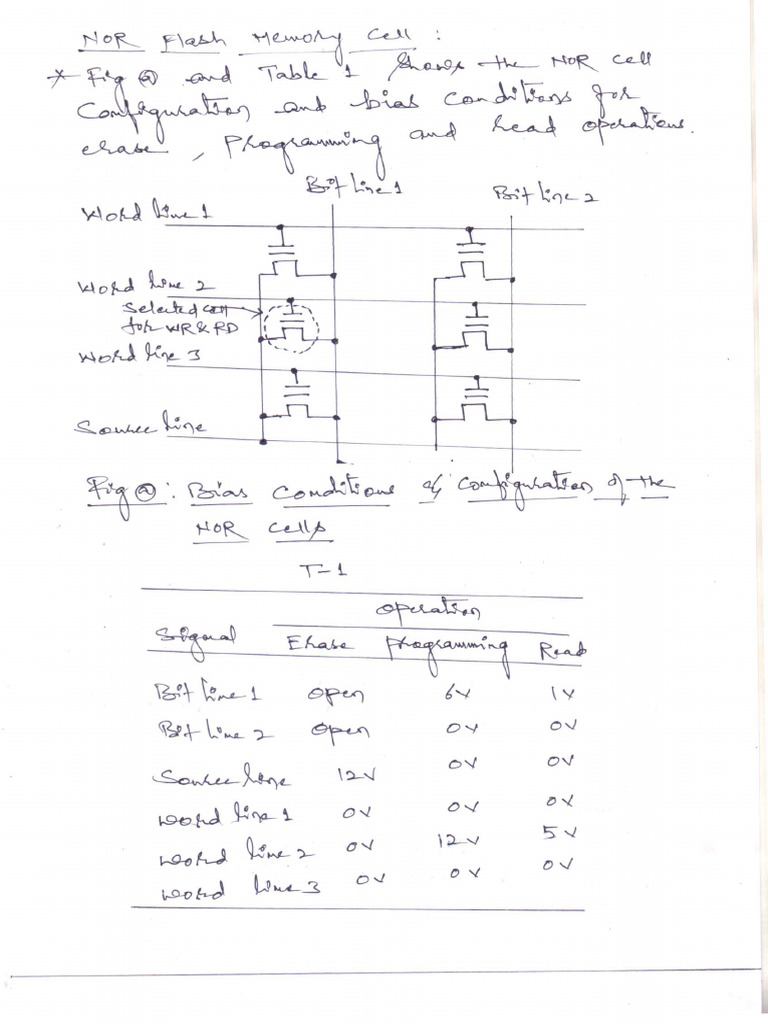 NOR Flash Memory Cell :
* Fig ⓐ and Table 1 Shows the NOR cell
Configuration and bias conditions for
erase, Programming and read operations.
Bit line 1
Bit line 2
Word line 1
Word line 2
Selected cell
for WR & RD
Word line 3
Source line
Fig ⓐ : Bias Conditions & Configuration of the
NOR Cells
T-1
Operation
Signal Erase Programming Read
Bit line 1 open 6V 1V
Bit line 2 open 0V 0V
Source line 12V 0V 0V
Word line 1 0V 0V 0V
Word line 2 0V 12V 5V
Word line 3 0V 0V 0V